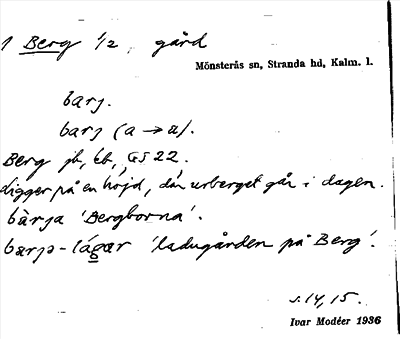 1 Berg ½, gård
Mönsterås sn, Stranda hd, Kalm. l.
barj.
barj (a → a).
Berg jb, kb, GS 22.
Ligger på en höjd, där urberget går i dagen.
bàrja 'Bergborna'.
barja-lágar 'ladugården på Berg'.
s. 14, 15.
Ivar Modéer 1936